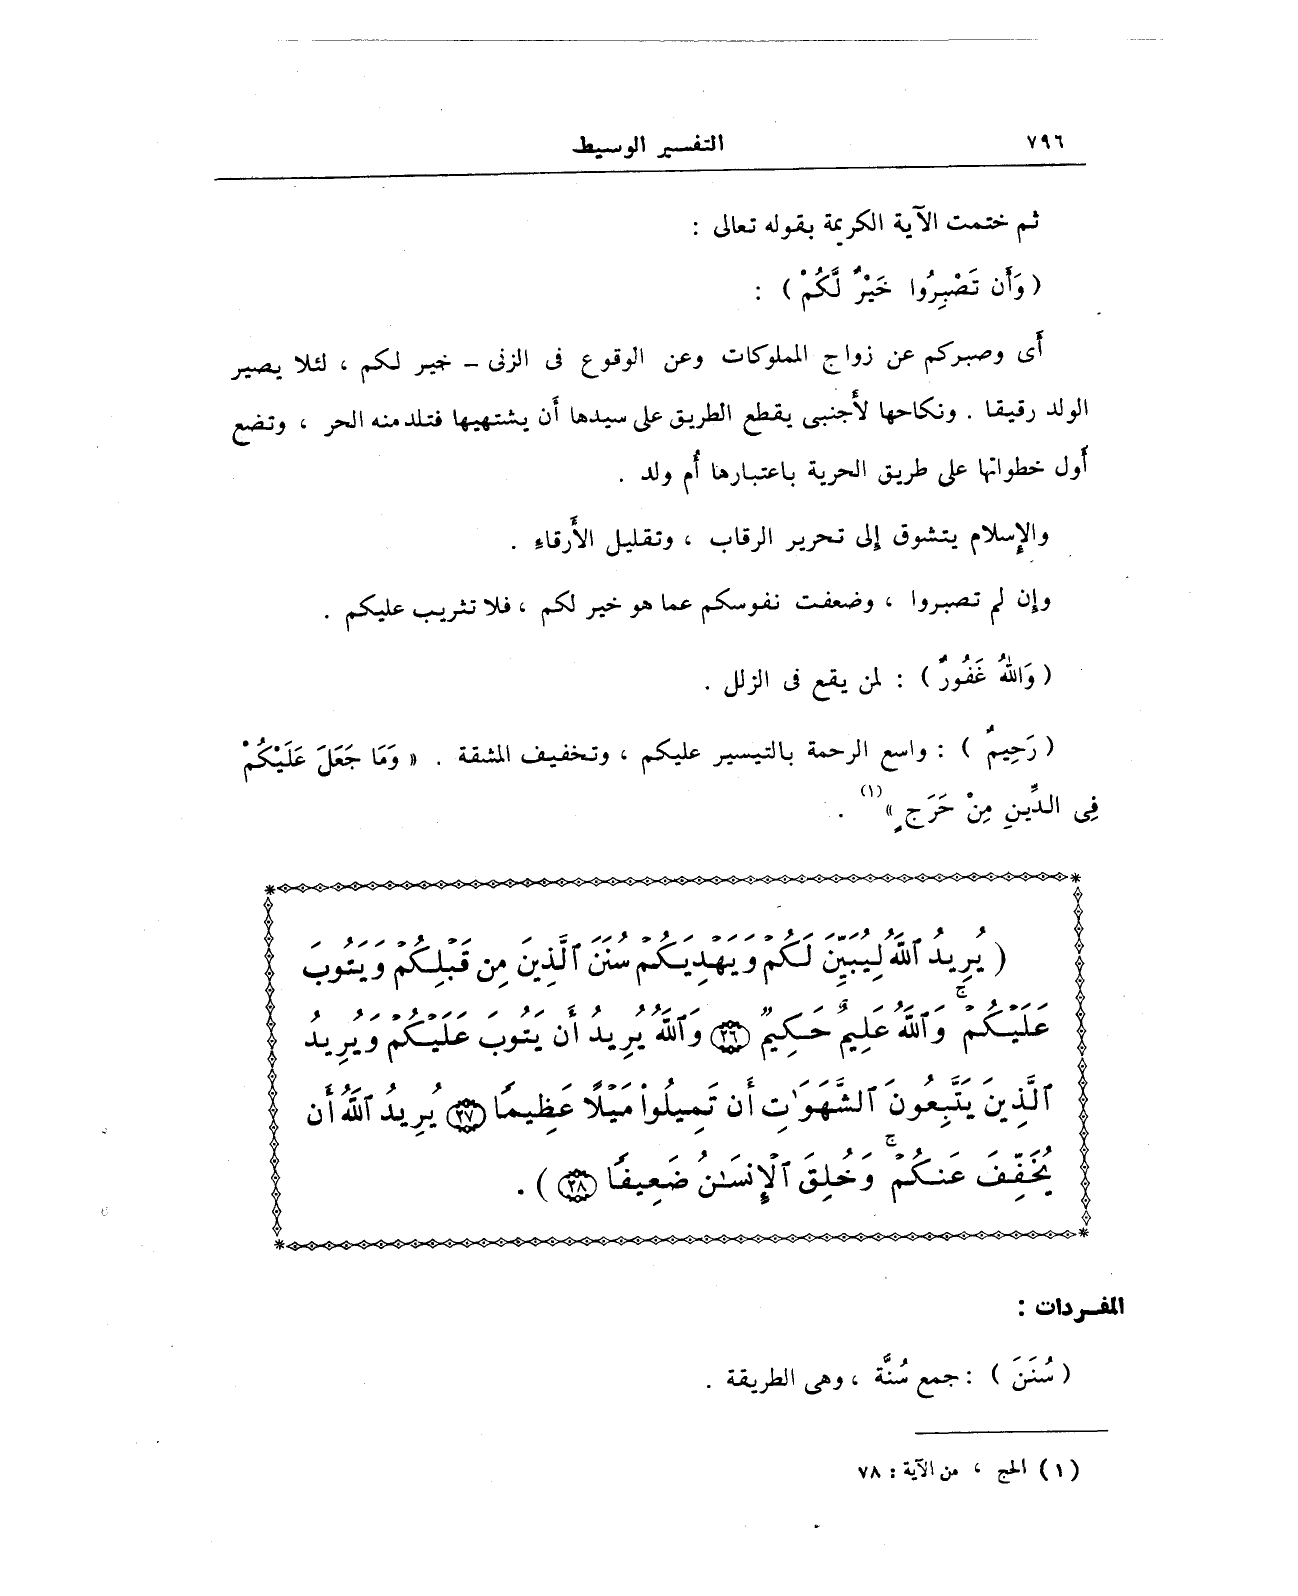 ٧٩٦
التفسير الوسيط
ثم ختمت الآية الكريمة بقوله تعالى :
( وَأَن تَصْبِرُوا خَيْرٌ لَّكُمْ ) :
أَى وصبركم عن زواج المملوكات وعن الوقوع فى الزنى – خير لكم ، لئلا يصير
الولد رقيقا . ونكاحها لأَجنبى يقطع الطريق على سيدها أَن يشتهيها فتلد منه الحر ، وتضع
أَول خطواتها على طريق الحرية باعتبارها أُم ولد .
والإِسلام يتشوق إِلى تحرير الرقاب ، وتقليل الأَرقاءِ .
وإن لم تصبروا ، وضعفت نفوسكم عما هو خير لكم ، فلا تثريب عليكم .
( وَاللهُ غَفُورٌ ) : لمن يقع فى الزلل .
( رَحِيمٌ ) : واسع الرحمة بالتيسير عليكم ، وتخفيف المشقة . « وَمَا جَعَلَ عَلَيْكُمْ
فِى الدِّينِ مِنْ حَرَجٍ »(١) .
( يُرِيدُ ٱللَّهُ لِيُبَيِّنَ لَكُمْ وَيَهْدِيَكُمْ سُنَنَ ٱلَّذِينَ مِن قَبْلِكُمْ وَيَتُوبَ
عَلَيْكُمْ ۗ وَٱللَّهُ عَلِيمٌ حَكِيمٌ ٢٦ وَٱللَّهُ يُرِيدُ أَن يَتُوبَ عَلَيْكُمْ وَيُرِيدُ
ٱلَّذِينَ يَتَّبِعُونَ ٱلشَّهَوَٰتِ أَن تَمِيلُوا۟ مَيْلًا عَظِيمًا ٢٧ يُرِيدُ ٱللَّهُ أَن
يُخَفِّفَ عَنكُمْ ۚ وَخُلِقَ ٱلْإِنسَـٰنُ ضَعِيفًا ٢٨ ) .
المفردات :
( سُنَنَ ) : جمع سُنَّة ، وهى الطريقة .
(١) الحج ، من الآية : ٧٨